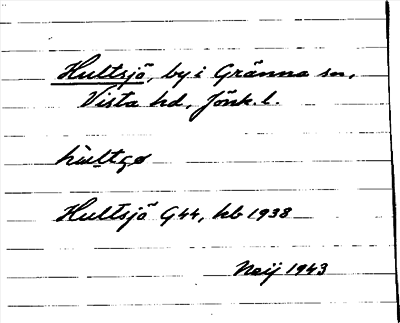 Hultsjö, by i Gränna sn,
Vista hd, Jönk. l.
hultsjö G44, kb 1938
Neij 1943